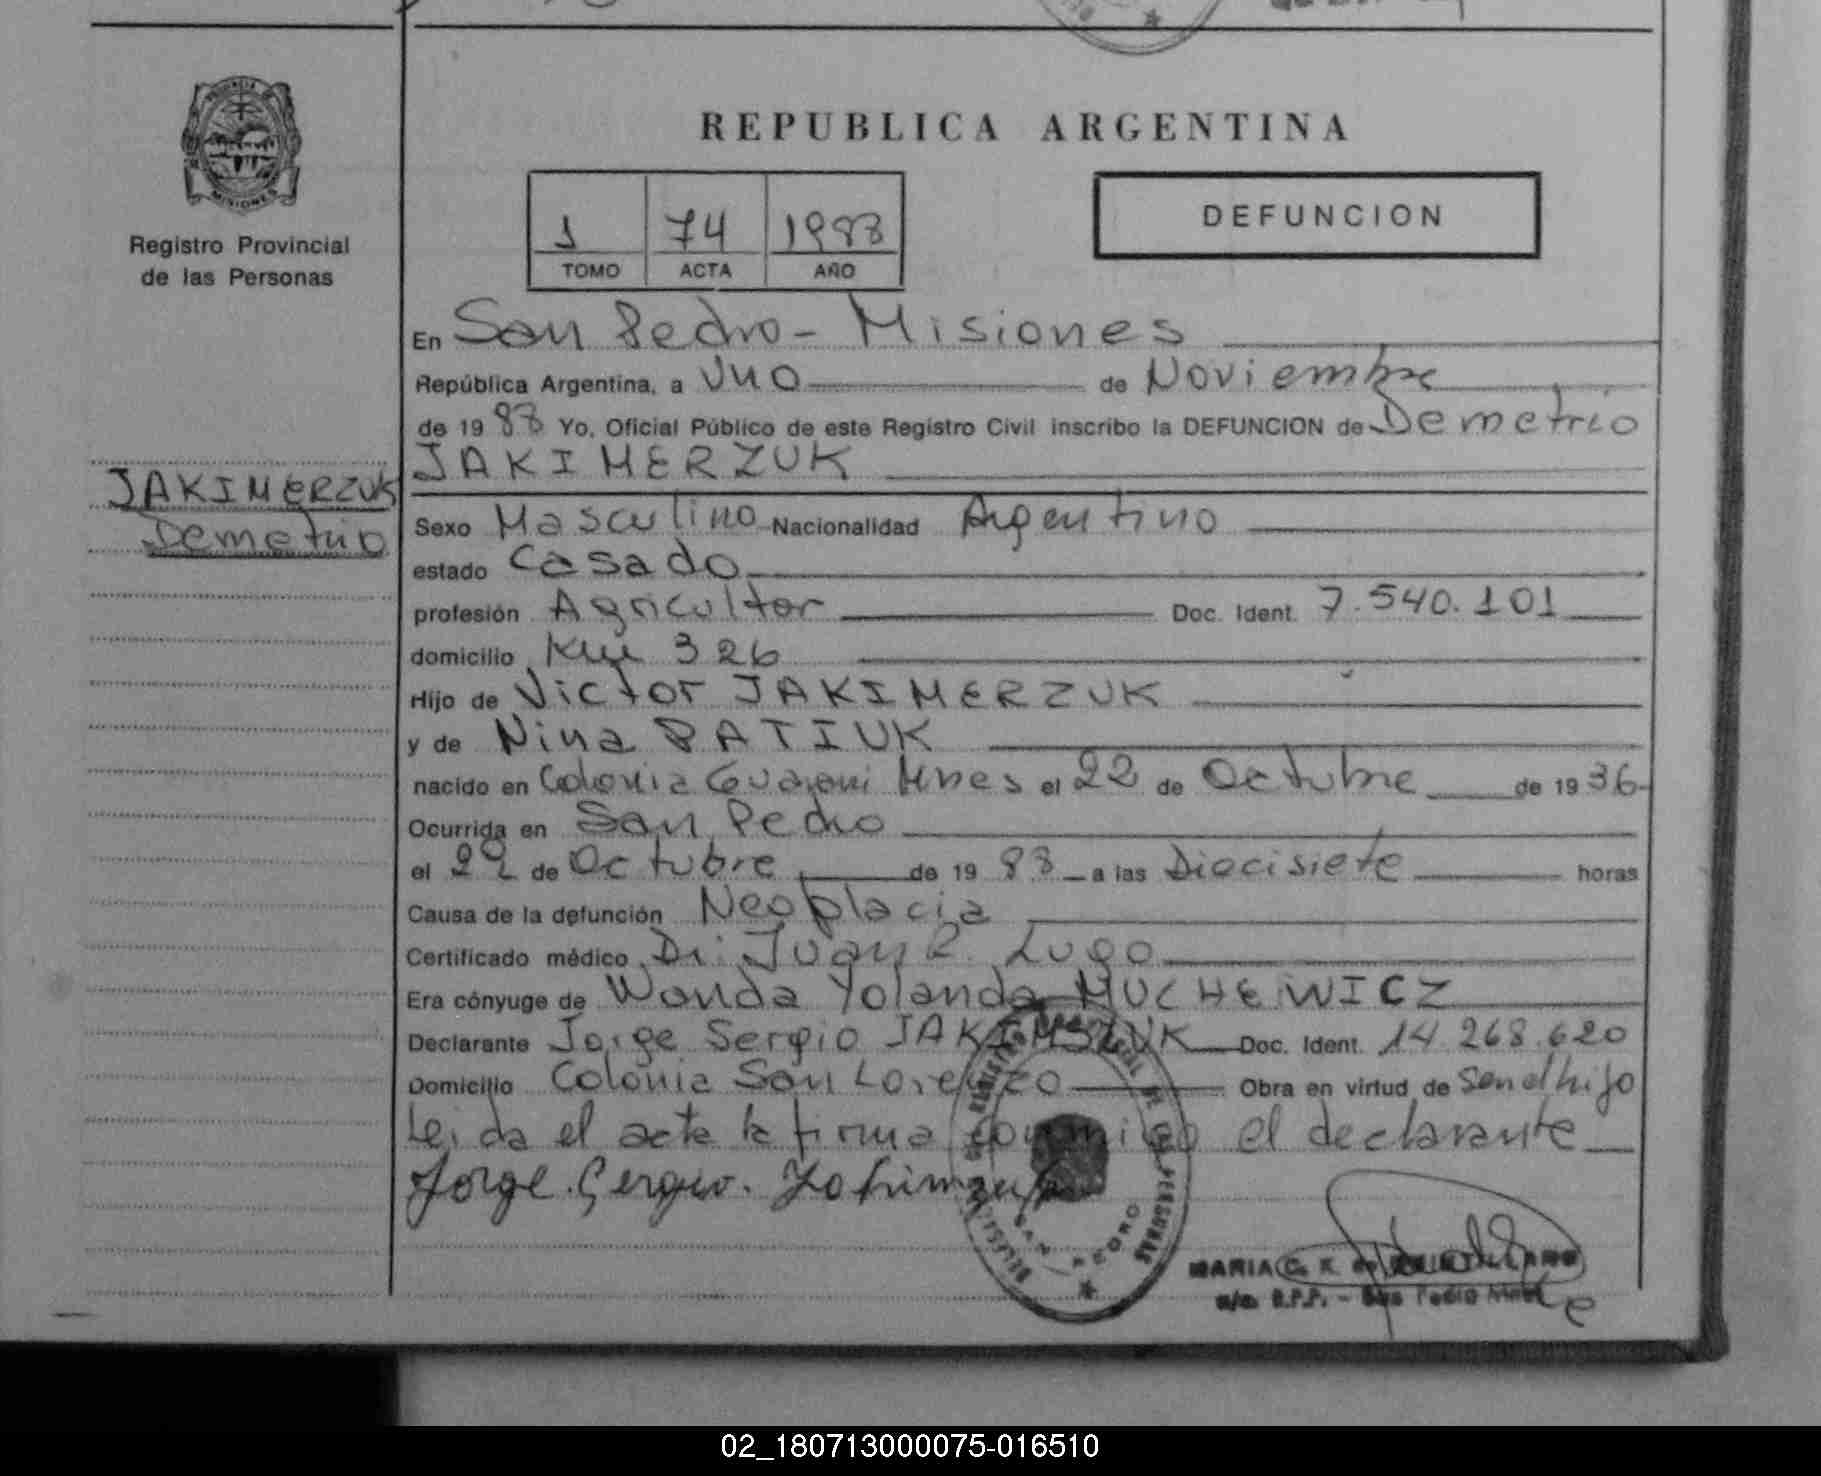 REPUBLICA ARGENTINA
PROVINCIA DE
MISIONES
Registro Provincial
de las Personas
1 74 1988
TOMO ACTA AÑO
DEFUNCION
En San Pedro - Misiones
República Argentina, a Uno de Noviembre
de 1988 Yo, Oficial Público de este Registro Civil inscribo la DEFUNCION de Demetrio
JAKIMERZUK
JAKIMERZUK
Demetrio
Sexo Masculino Nacionalidad Argentino
estado Casado
profesión Agricultor Doc. Ident. 7.540.101
domicilio Km 326
Hijo de Victor JAKIMERZUK
y de Nina PATIUK
nacido en Colonia Guarani Mnes el 22 de Octubre de 1936
Ocurrida en San Pedro
el 29 de Octubre de 1988 a las Diecisiete horas
Causa de la defunción Neoplacia
Certificado médico Dr. Juan R. Lugo
Era cónyuge de Wanda Yolanda MUCHEWICZ
Declarante Jorge Sergio JAKIMSZUK Doc. Ident. 14.268.620
Domicilio Colonia San Lorenzo Obra en virtud de Ser el hijo
Leida el acta la firma conmigo el declarante
Jorge Sergio
SAN PEDRO
MARIA
02_180713000075-016510